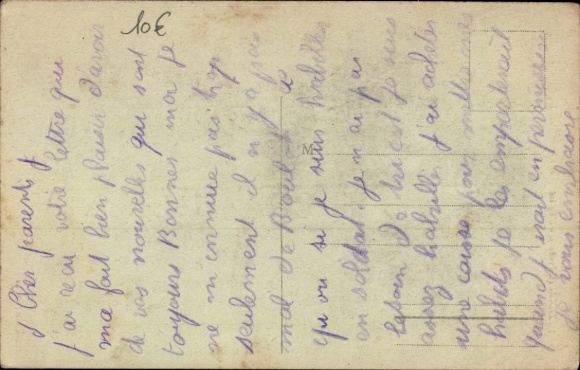 10€
Chers parents
j'ai reçu votre lettre qui
ma fait bien plaisir d'avoir
de vos nouvelles qui sont
toujours Bonnes. moi je
ne m'ennuie pas trop
seulement il n'y a pas
mal de Boulot
M
qu ou si je suis habiller
en soldat je n'ai pas
besoin de tricot je suis
assez habiller j'ai acheter
une caisse pour mettre mes
habits je les emporterait
quand j'irait en permission
je vous embrasse